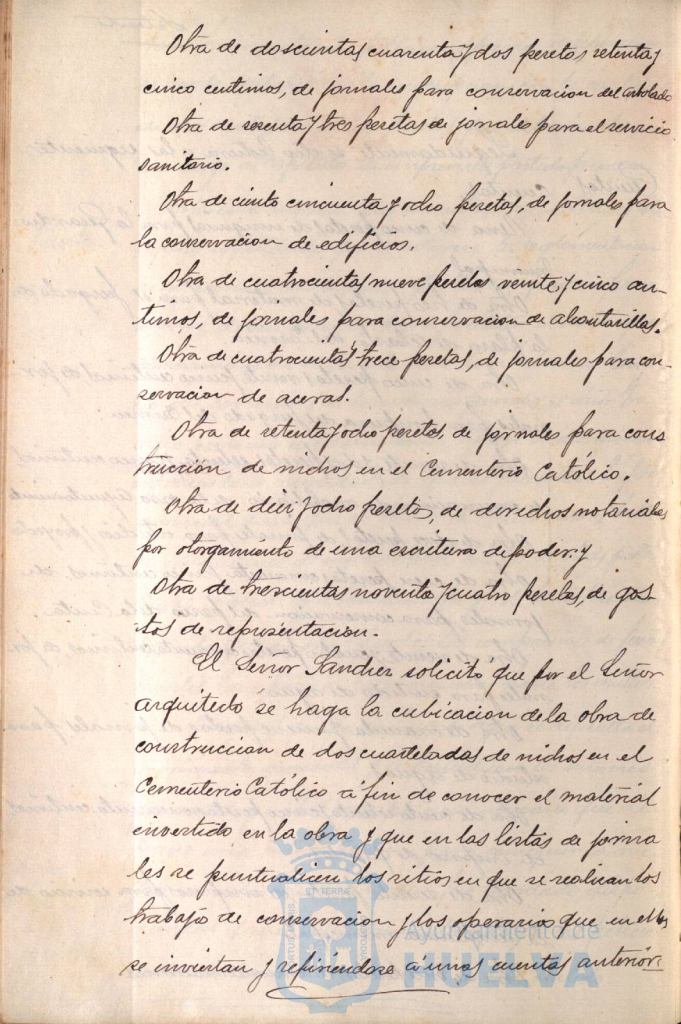 Otra de doscientas cuarenta y dos pesetas setenta y
cinco centimos, de jornales para conservacion del arbolado
Otra de sesenta y tres pesetas de jornales para el servicio
sanitario.
Otra de ciento cincuenta y ocho pesetas, de jornales para
la conservacion de edificios.
Otra de cuatrocientas nueve pesetas veinte y cinco cen-
timos, de jornales para conservacion de alcantarillas.
Otra de cuatrocientas trece pesetas, de jornales para con-
servacion de aceras.
Otra de setenta y ocho pesetas, de jornales para cons
trucción de nichos en el Cementerio Católico.
Otra de diez y ocho pesetas, de derechos notariales
por otorgamiento de una escritura de poder: y
Otra de trescientas noventa y cuatro pesetas, de gas-
tos de representacion.
El Señor Sanchez solicitó que por el Señor
arquitecto se haga la cubicacion de la obra de
construccion de dos cuarteladas de nichos en el
Cementerio Católico á fin de conocer el material
invertido en la obra y que en las listas de jorna
les se puntualicen los sitios en que se realizan los
trabajos de conservacion y los operarios que en ellos
se inviertan y refiriendose á unas cuentas anterior-
Ayuntamiento de
HUELVA